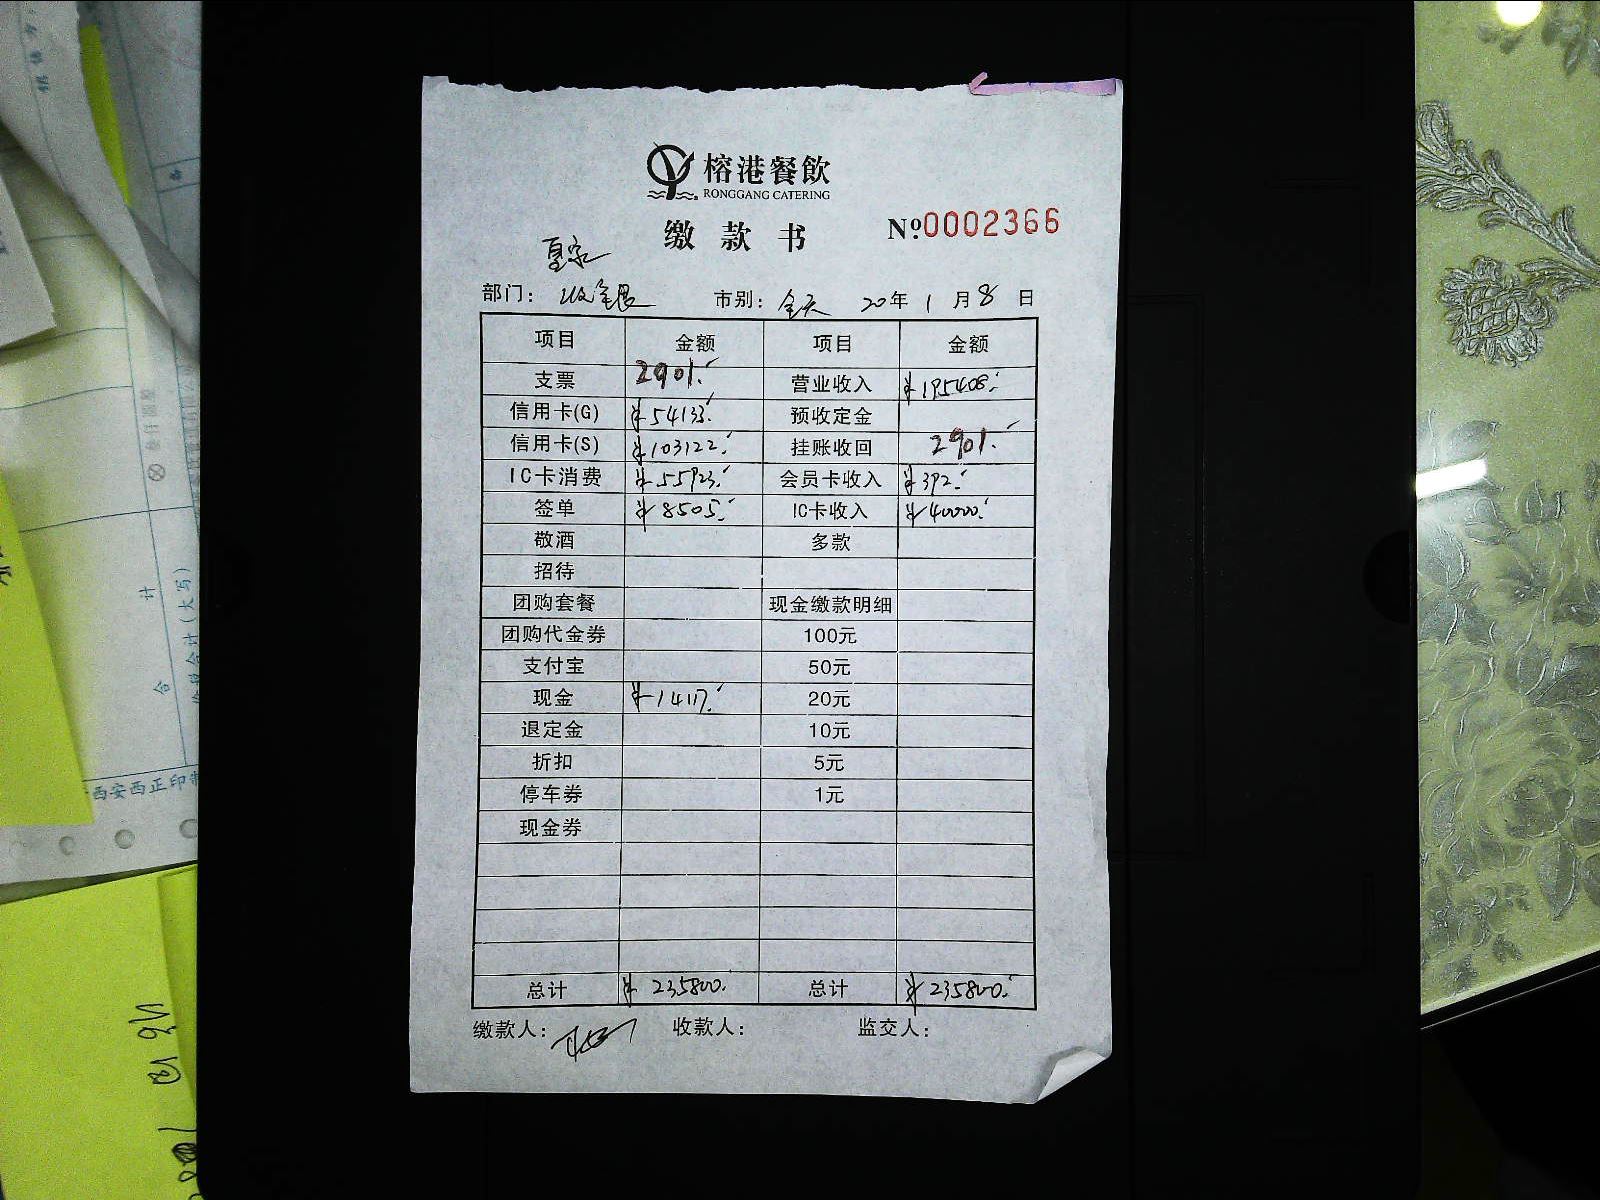 榕港餐飲
RONGGANG CATERING
缴款书
№0002366
部门: 收银 市别: 全天 20年 1月 8日
项目 金额 项目 金额
支票 2901. 营业收入 ¥195408.
信用卡(G) ¥54133. 预收定金
信用卡(S) ¥103122. 挂账收回 2901.
IC卡消费 ¥55923. 会员卡收入 ¥392.
签单 ¥8505. IC卡收入 ¥40000.
敬酒 多款
招待
团购套餐 现金缴款明细
团购代金券 100元
支付宝 50元
现金 ¥14117. 20元
退定金 10元
折扣 5元
停车券 1元
现金券
总计 ¥235800. 总计 ¥235800.
缴款人: 收款人: 监交人:
西安西正印
合计
(大写)